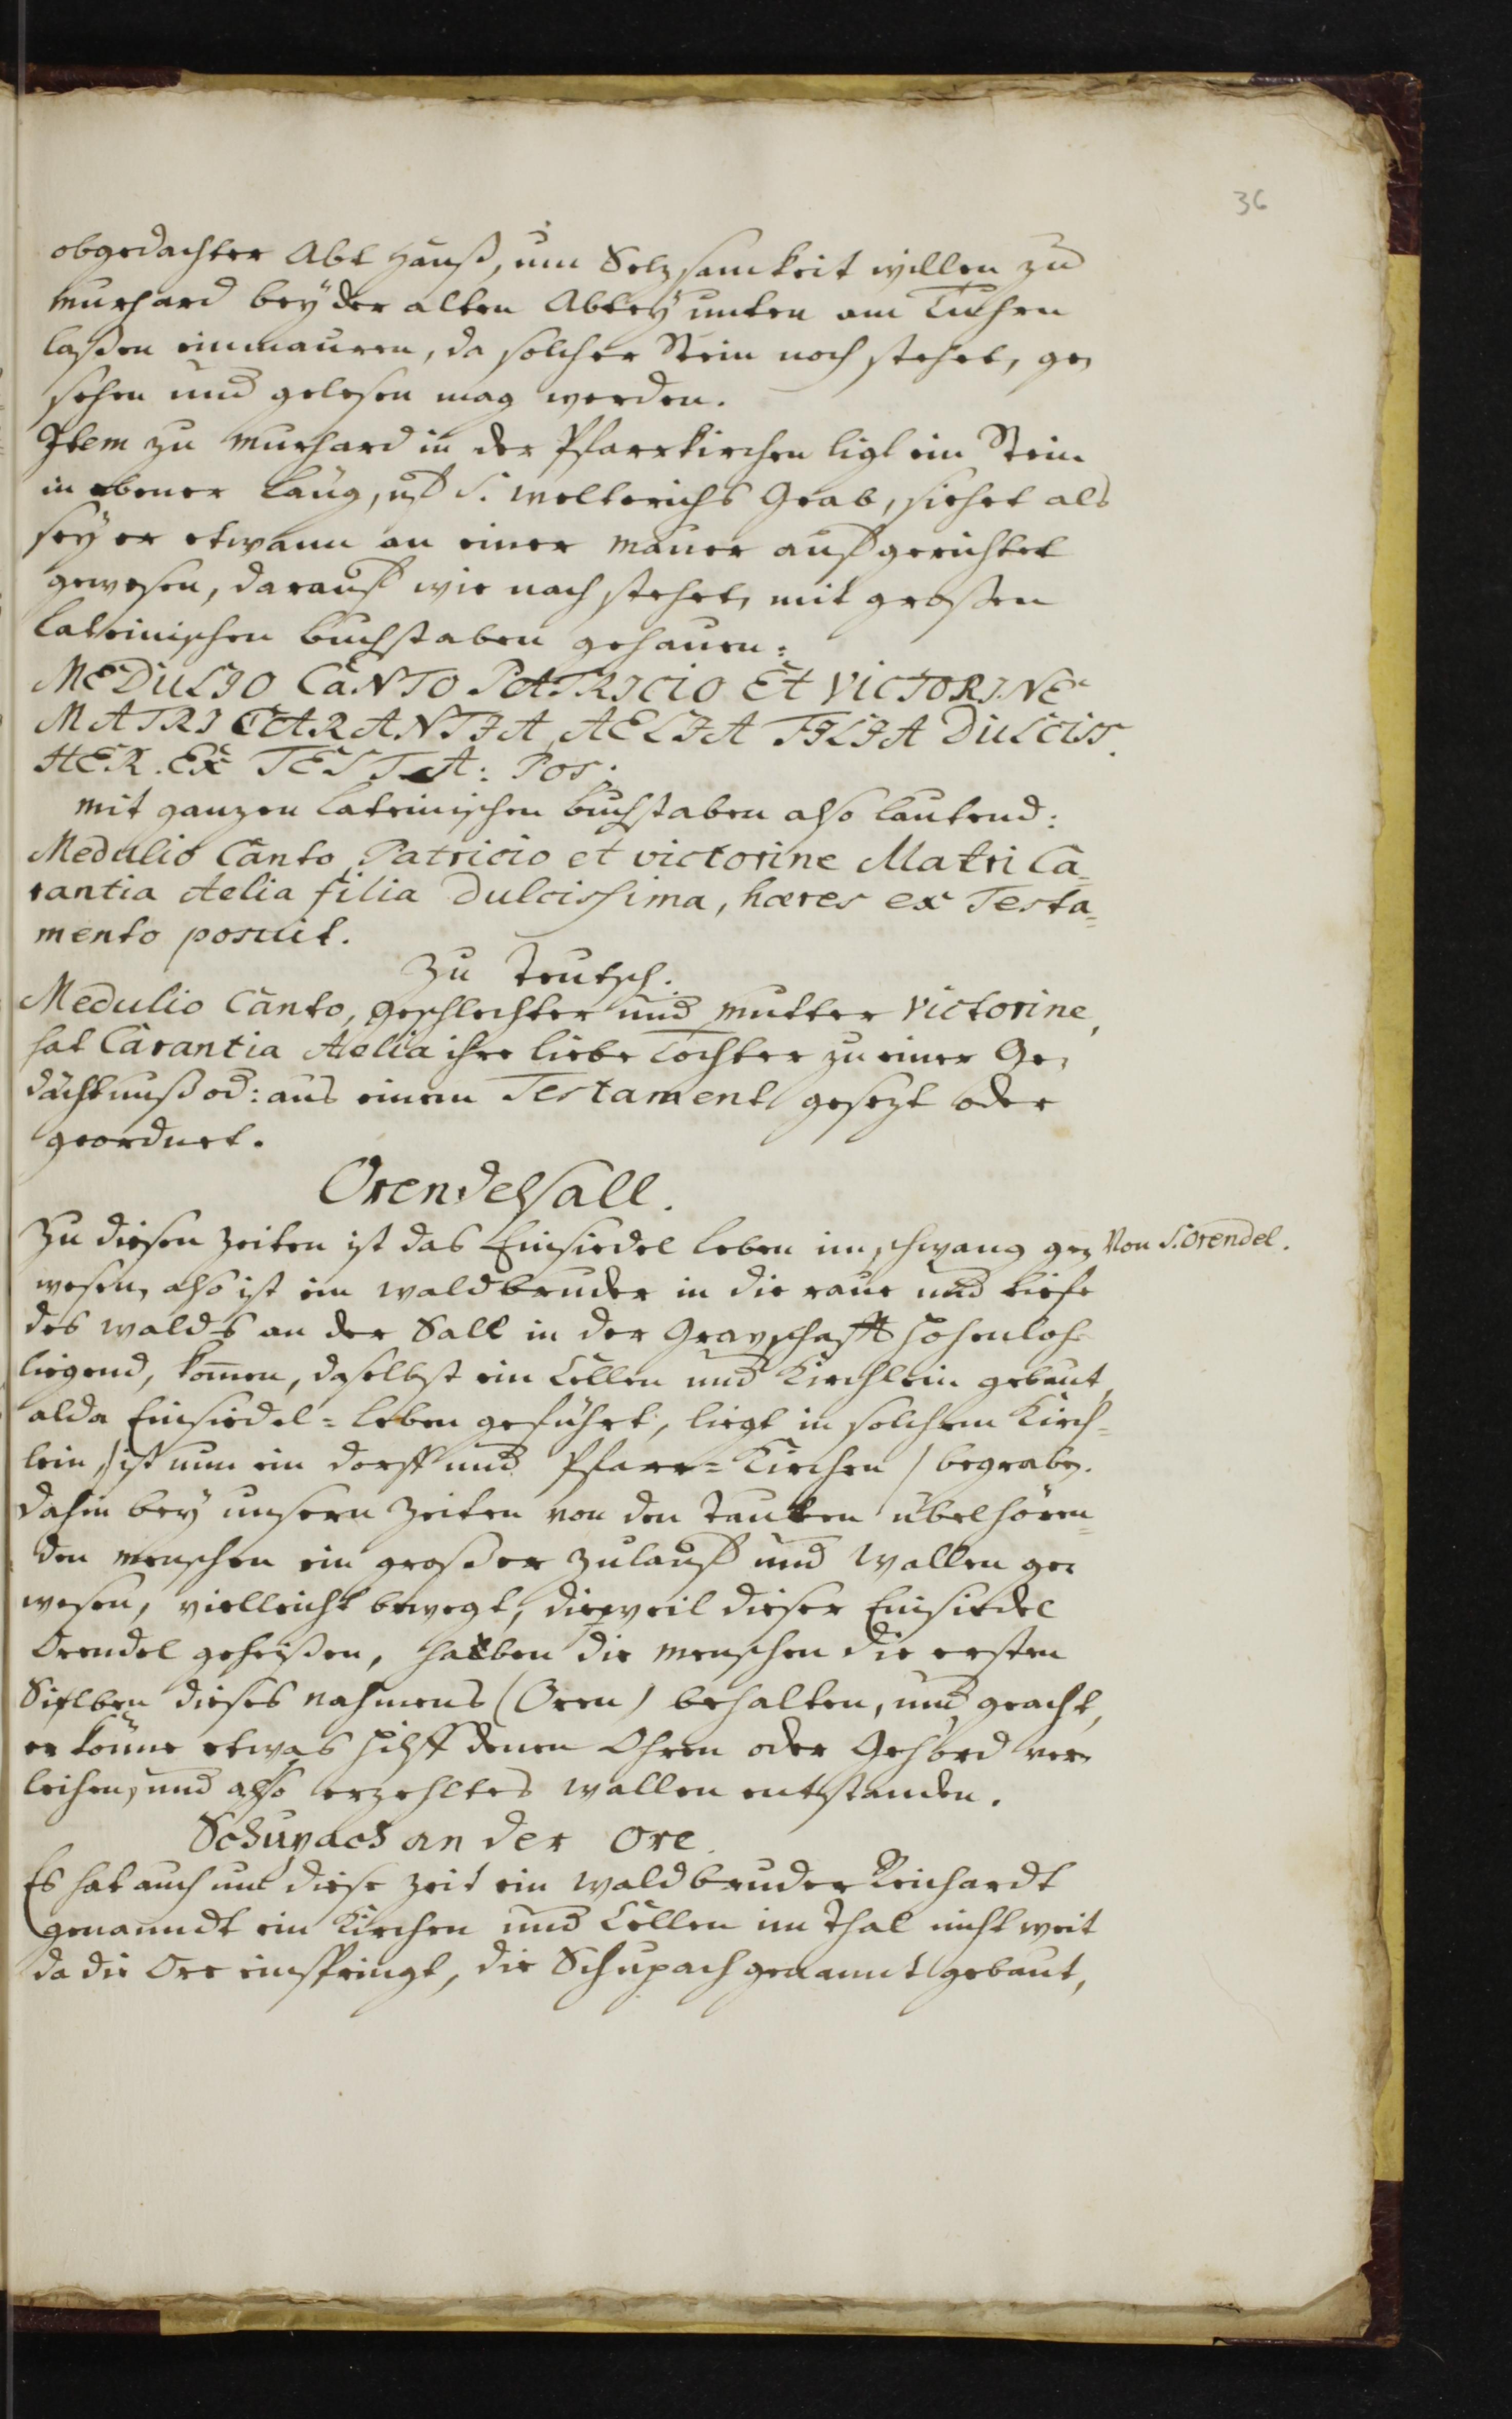 36
obgedachter Abt Hanß, um Selzsamkeit willen zu
Murhard bey der alten Abtey unten am Kirchen
laßen einmauren, da solcher Stein noch stehet, ge-
sehen und gelesen mag werden.
Item zu Murhard in der Pfarrkirchen ligt ein Stein
in ebener Läng, uf S. Welterichs Grab, siehet als
sey er etwann an einer mauer aufgerichtet
gewesen, darauf wie nach stehet, mit großen
Lateinischen buchstaben gehauen:
MEDULIO CANTO PATRICIO ET VICTORINE
MATRI CARANTIA AELIA FILIA DULCISS.
HER. EX TESTA: POS:
mit ganzen Lateinischen buchstaben also lautend:
Medulio Canto Patricio et victorine Matri Ca=
rantia Aelia filia Dulcissima, hæres ex Testa=
mento posuit.
Zu Teutsch.
Medulio Canto, geschlechter und mutter Victorine,
hat Carantia Aelia ihre liebe Tochter zu einer Ge-
dächtnuß od: aus einem Testament gesezt oder
geordnet.
Orendelsall.
Zu diesen Zeiten ist das Einsiedel leben im schwang ge- Von S. Orendel.
wesen, also ist ein waldbruder in die raue und tiefe
des walds an der Sall in der Gravschafft Hohenlohe
liegend, kommen, daselbst ein Cellen und Kirchlein gebaut,
alda Einsiedel=leben geführt, liegt in solchem Kirch=
lein, /ist nun ein dorff und Pfarr=Kirchen / begraben.
dahin bey unsern Zeiten von den Tauben übelhören=
den menschen ein großer Zulauf und Wallen ge-
wesen, vielleicht bewegt, dieweil dieser Einsiedel
Orendel geheißen, haben die menschen die ersten
Sielben dieses nahmens (Oren) behalten, und geacht,
er könne etwas hilff denen Ohren oder Gehörd ver-
leihen, und also erzehltes wallen entstanden.
Schupach an der Ore.
Es hat auch um diese Zeit ein Waldbruder Reichardt
genanndt ein Kirchen und Cellen im Thal nicht weit
da die Ore einspringt, die Schupach genannt gebaut,